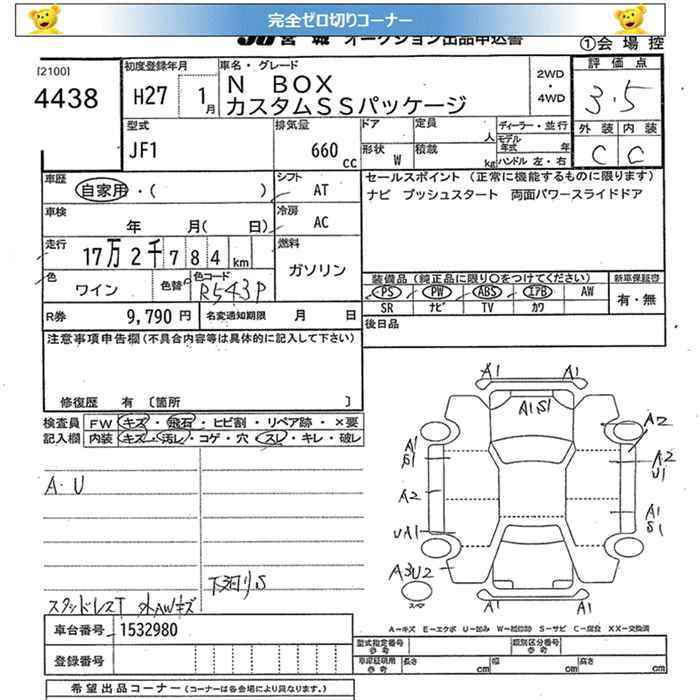 完全ゼロ切りコーナー
JU宮城 オークション出品申込書
①会場控
[2100]
4438
初度登録年月
H27 1月
車名・グレード
N BOX
カスタムSSパッケージ
2WD
・
4WD
評価点
3.5
外装 内装
C C
型式
JF1
排気量
660 cc
ドア
形状 W
定員 人
積載 kg
ディーラー・並行
モデル年式 年
ハンドル 左・右
車歴
自家用・( )
シフト
AT
車検
年 月( 日)
冷房
AC
走行
17万2千784km
燃料
ガソリン
色
ワイン
色替
色コード
R543P
R券 9,790円
名変通知期限 月 日
セールスポイント(正常に機能するものに限ります)
ナビ プッシュスタート 両面パワースライドドア
装備品(純正品に限り○をつけてください)
新車保証書
PS PW ABS エアB AW
SR ナビ TV カワ
有・無
後日品
注意事項申告欄(不具合内容等は具体的に記入して下さい)
修復歴 有〔箇所 〕
検査員
記入欄
FW キズ・飛石・ヒビ割・リペア跡・×要
内装 キズ・汚レ・コゲ・穴・スレ・キレ・破レ
A・U
下廻りS
スタッドレスT 外AWキズ
A1 A1
A1S1
A2
A1
S1
A2
U1
A2
A1
S1
UA1
A3U2
A1 A1
スペア
A−キズ E−エクボ U−凹み W−補修跡 S−サビ C−腐食 XX−交換済
車台番号 1532980
登録番号
型式指定番号
参考
類別区分番号
参考
車庫証明用
参考
長さ cm 幅 cm 高さ cm
希望出品コーナー(コーナーは各会場により異なります。)